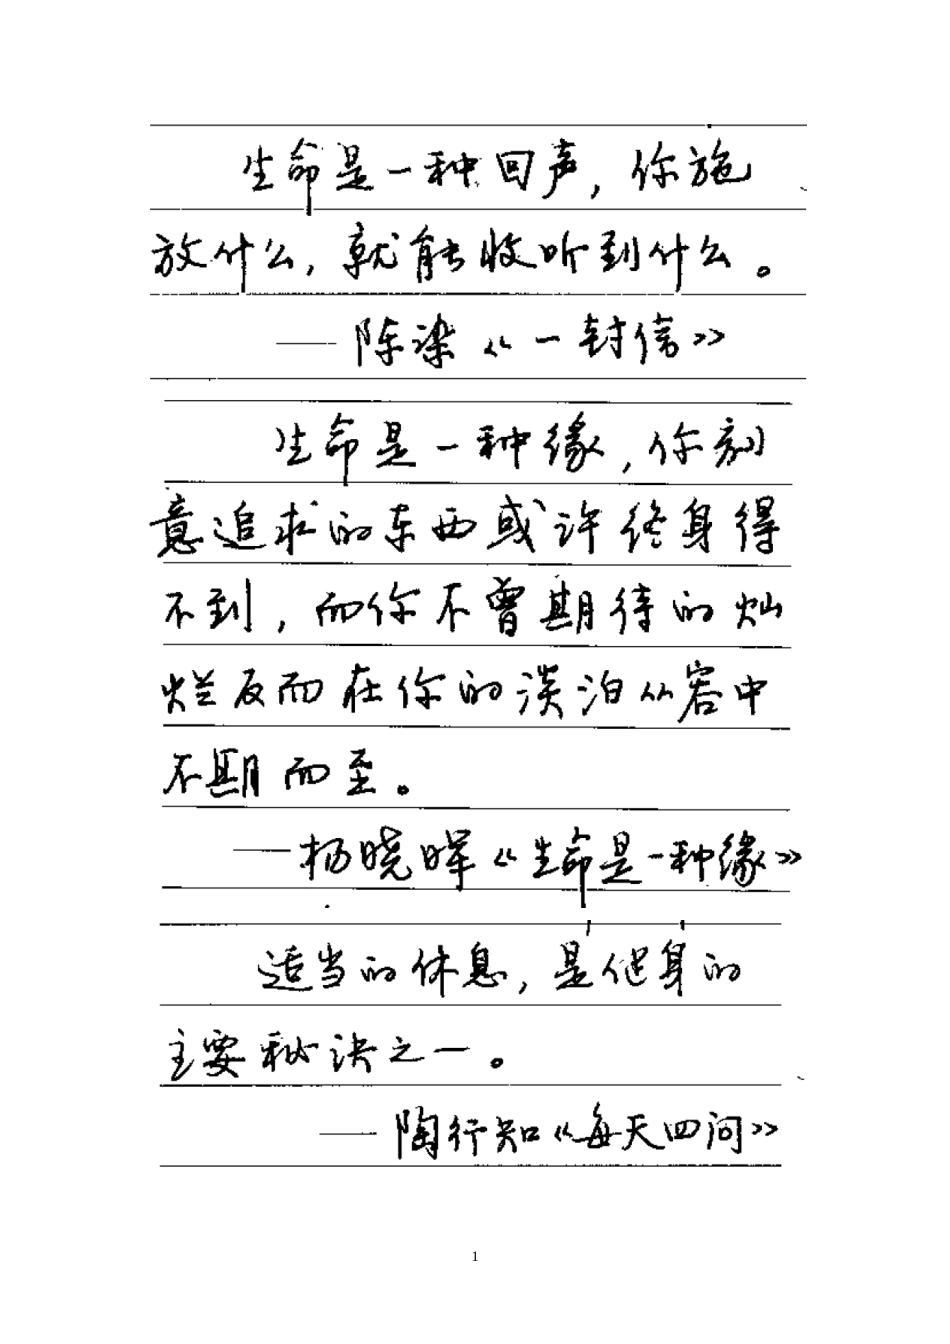 生命是一种回声，你施
放什么，就能收听到什么。
——陈染《一封信》
生命是一种缘，你刻
意追求的东西或许终身得
不到，而你不曾期待的灿
烂反而在你的淡泊从容中
不期而至。
——杨晓晖《生命是一种缘》
适当的休息，是健身的
主要秘决之一。
——陶行知《每天四问》
1